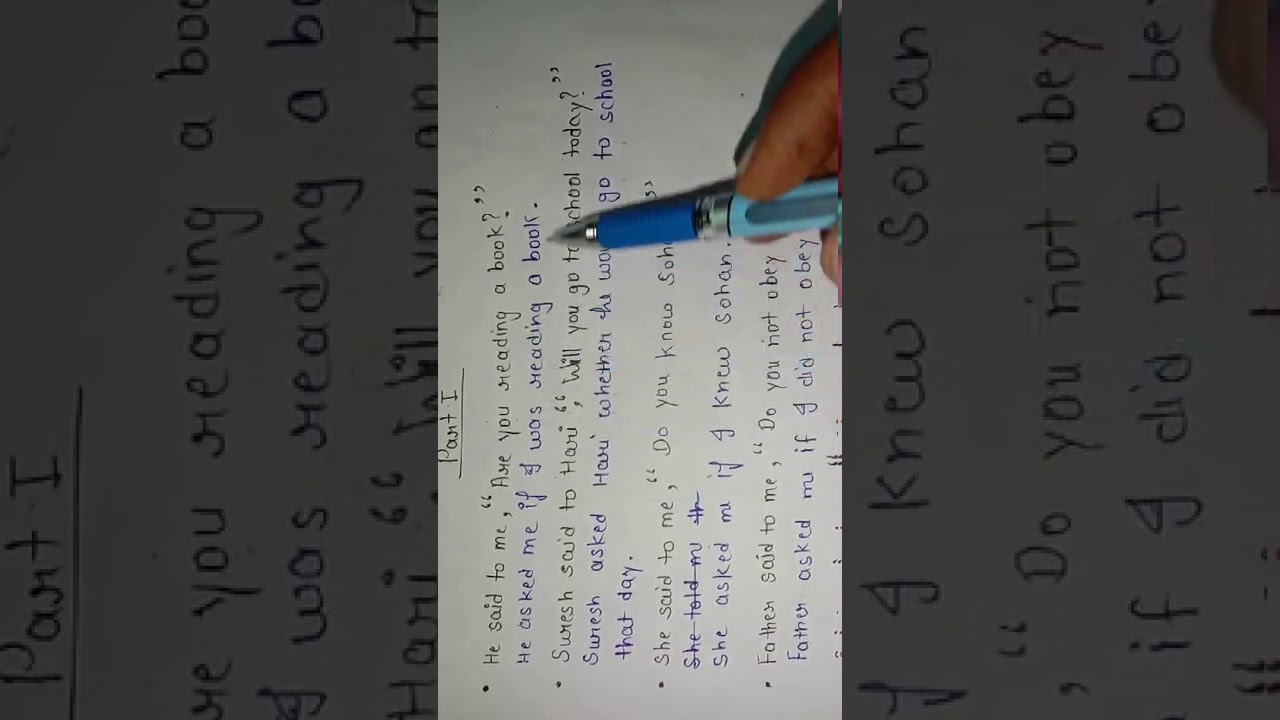 Part-I
• He said to me, “Are you reading a book?”
He asked me if I was reading a book.
• Suresh said to Hari “, Will you go to school today?”
Suresh asked Hari whether he go to school
that day.
• She said to me, “Do you know ”
She told me th
She asked me if I knew Sohan.
• Father said to me, “Do you not obey
Father asked me if I did not obey